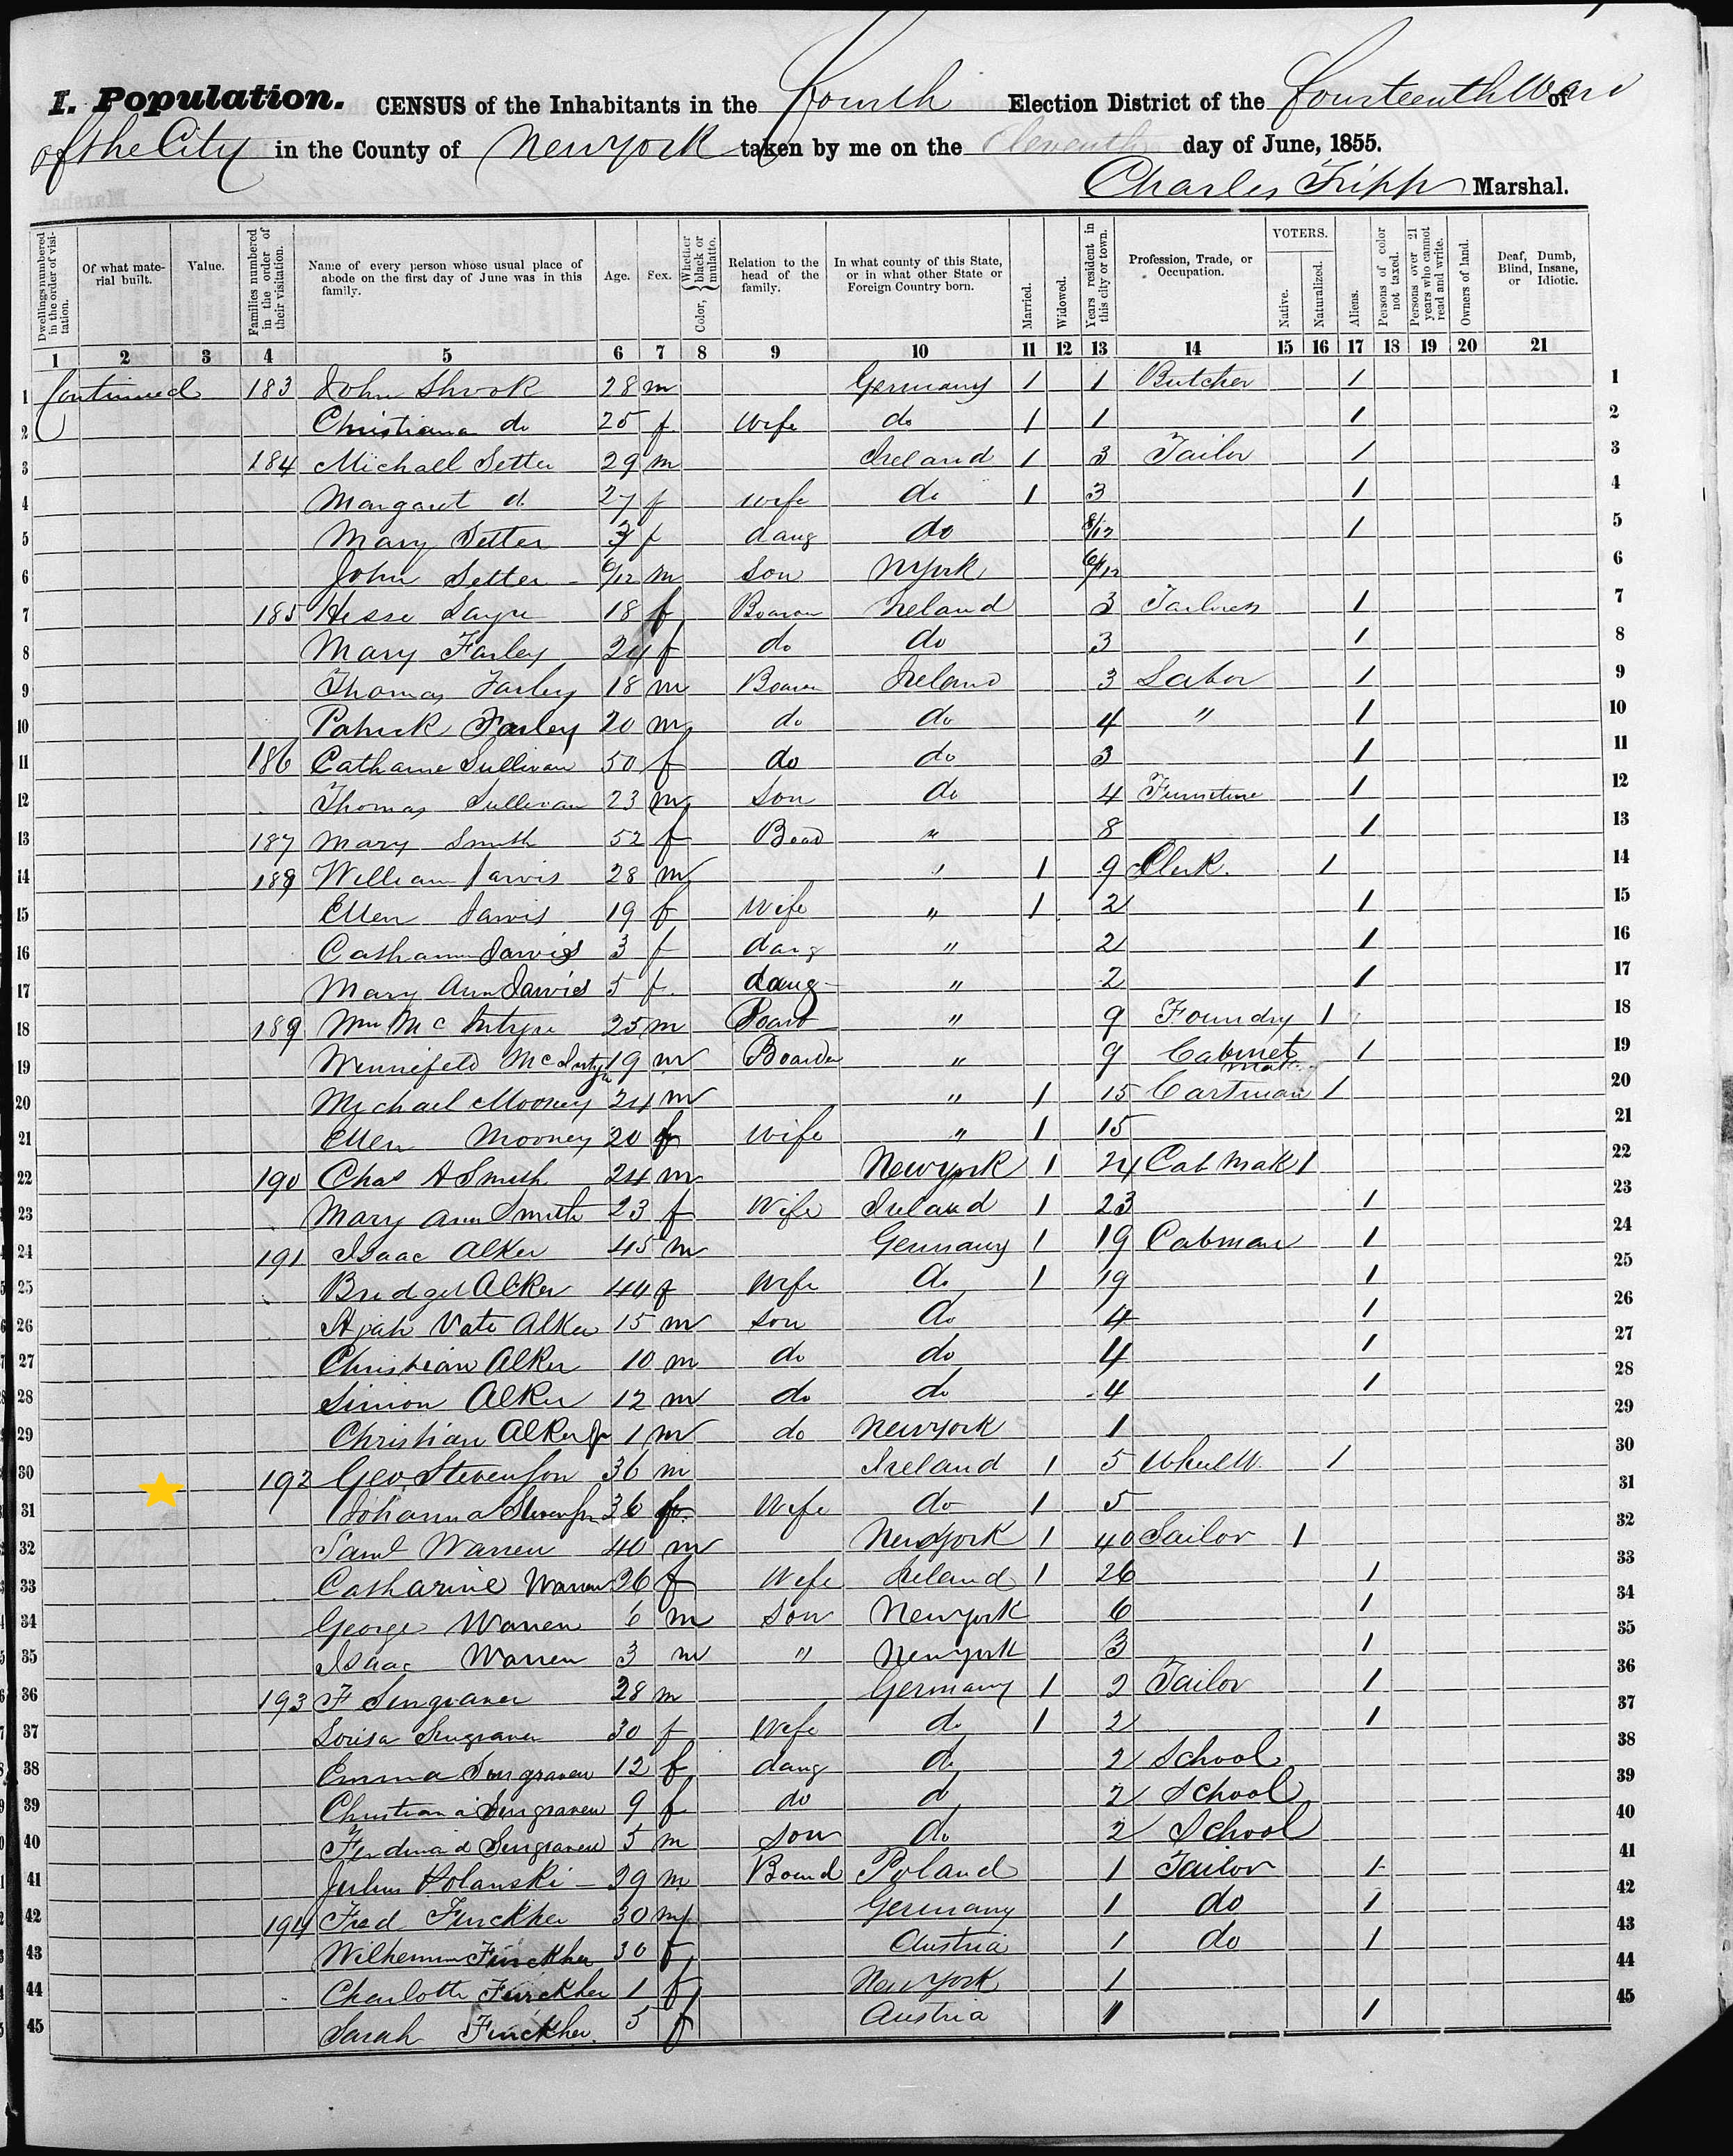 I. Population. CENSUS of the Inhabitants in the Fourth Election District of the Fourteenth Ward of
of the City in the County of New York taken by me on the Eleventh day of June, 1855.
Charles Tripp Marshal.
Dwellings numbered in the order of visitation. Of what material built. Value. Families numbered in the order of their visitation. Name of every person whose usual place of abode on the first day of June was in this family. Age. Sex. Color, Whether black or mulatto. Relation to the head of the family. In what county of this State, or in what other State or Foreign Country born. Married. Widowed. Years resident in this city or town. Profession, Trade, or Occupation. VOTERS. Native. Naturalized. Aliens. Persons of color not taxed. Persons over 21 years who cannot read and write. Owners of land. Deaf, Dumb, Blind, Insane, or Idiotic.
1 2 3 4 5 6 7 8 9 10 11 12 13 14 15 16 17 18 19 20 21
1 Continued 183 John Shook 28 m Germany 1 1 Butcher 1 1
2 Christiana do 25 f Wife do 1 1 1 2
3 184 Michall Setter 29 m Ireland 1 3 Tailor 1 3
4 Margaret d 27 f wife do 1 3 1 4
5 Mary Setter 3 f daug do 8/12 1 5
6 John Setter 6/12 m Son NYork 6/12 6
7 185 18 f Ireland 3 Tailoress 1 7
8 Mary Farley 24 f do do 3 1 8
9 Thomas Farley 18 m Ireland 3 Labor 1 9
10 Patrick Farley 20 m do do 4 " 1 10
11 186 Catharine Sullivan 50 f do do 3 1 11
12 Thomas Sullivan 23 m Son do 4 Furniture 1 12
13 187 Mary Smith 52 f Boad " 8 1 13
14 188 William Jarvis 28 m " 1 9 Clerk. 1 14
15 Ellen Jarvis 19 f Wife " 1 2 1 15
16 Jarvis 3 f daug " 2 1 16
17 Mary Ann Jarvis 5 f daug " 2 1 17
18 189 Wm McIntyre 25 m Board " 9 Foundry 1 18
19 Winnifeld McIntyre 19 m Boarder " 9 Cabinet Mak 1 19
20 Mychael Mooney 24 m " 1 15 Cartman 1 20
21 Ellen Mooney 20 f wife " 1 15 21
22 190 Chas A Smith 24 m New York 1 24 Cab Mak 1 22
23 Mary Ann Smith 23 f Wife Ireland 1 23 1 23
24 191 Isaac Alker 45 m Germany 1 19 Cabman 1 24
25 Bridget Alker 44 f Wife do 1 19 1 25
26 Alker 15 m son do 4 1 26
27 Christian Alker 10 m do do 4 1 27
28 Simon Alker 12 m do do 4 1 28
29 Christian Alker Jr 1 m do New York 1 29
30 192 Geo Stevenson 36 m Ireland 1 5 Wheel W. 1 30
31 Johanna Stevenson 36 f. Wife do 1 5 31
32 Saml Warren 40 m New York 1 40 Sailor 1 32
33 Catharine Warren 26 f Wife Ireland 1 26 1 33
34 George Warren 6 m Son New York 6 1 34
35 Isaac Warren 3 m " New York 3 1 35
36 193 F Sengraven 28 m Germany 1 2 Tailor 1 36
37 Lovisa Sengraven 30 f Wife do 1 2 1 37
38 Emma Sengraven 12 f daug do 2 School 38
39 Christiana Sengraven 9 f do d 2 School 39
40 Ferdinad Sengraven 5 m Son do 2 School 40
41 Julius Polanski 29 m Board Poland 1 Tailor 1 41
42 194 Fred Finckher 30 m Germany 1 do 1 42
43 Wilhemin Finckher 30 f Austria 1 do 1 43
44 Charlotte Finckher 1 f New York 1 44
45 Sarah Finckher 5 f Austria 1 1 45